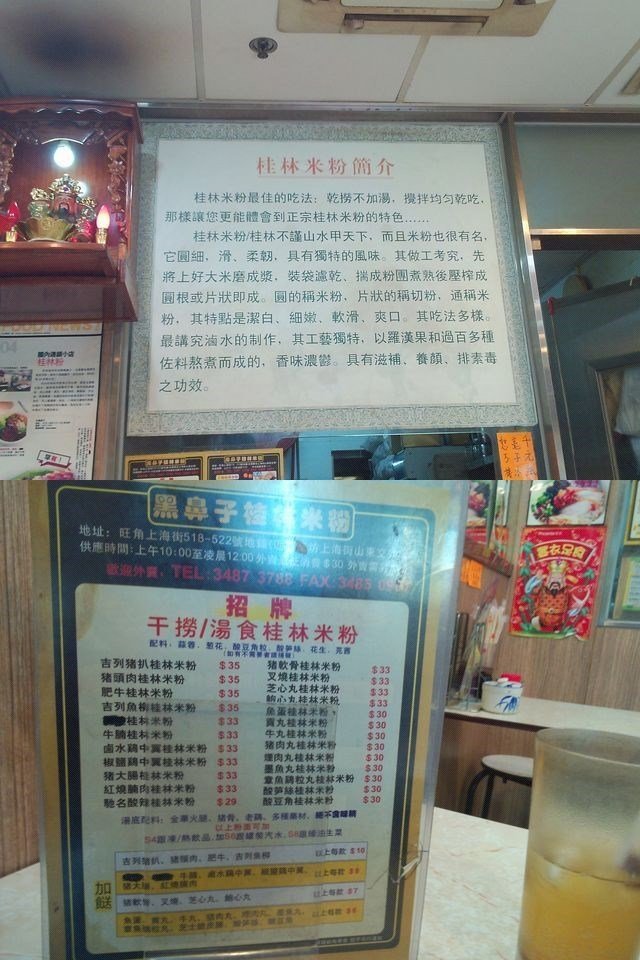 桂林米粉簡介
桂林米粉最佳的吃法：乾撈不加湯，攪拌均勻乾吃，
那樣讓您更能體會到正宗桂林米粉的特色……
桂林米粉/桂林不謹山水甲天下，而且米粉也很有名，
它圓細、滑、柔韌，具有獨特的風味。其做工考究，先
將上好大米磨成漿，裝袋濾乾、揣成粉團煮熟後壓榨成
圓根或片狀即成。圓的稱米粉，片狀的稱切粉，通稱米
粉，其特點是潔白、細嫩、軟滑、爽口。其吃法多樣。
最講究滷水的制作，其工藝獨特，以羅漢果和過百多種
佐料熬煮而成的，香味濃鬱。具有滋補、養顏、排素毒
之功效。
OOD NEWS
國內過鑊小店
桂林粉
黑鼻子桂林米粉
地址：旺角上海街518-522號地鋪
坊上海街山東文
供應時間：上午10:00至凌晨12:00 外賣
消費$30
歡迎外賣，TEL:3487 3788 FAX:3485
招牌
干撈/湯食桂林米粉
配料：蒜蓉、葱花、酸豆角粒、酸笋絲、花生、芫茜
吉列豬扒桂林米粉 $35
豬頭肉桂林米粉 $35
肥牛桂林米粉 $35
吉列魚柳桂林米粉 $35
桂林米粉 $33
牛腩桂林米粉 $33
鹵水鷄中翼桂林米粉 $33
椒鹽鷄中翼桂林米粉 $33
豬大腸桂林米粉 $33
紅燒腩肉桂林米粉 $33
馳名酸辣桂林米粉 $29
豬軟骨桂林米粉 $33
叉燒桂林米粉 $33
芝心丸桂林米粉 $33
鮑心丸桂林米粉 $33
魚蛋桂林米粉 $30
貢丸桂林米粉 $30
牛丸桂林米粉 $30
豬肉丸桂林米粉 $30
爆肉丸桂林米粉 $30
墨魚丸桂林米粉 $30
章魚鷄粒丸桂林米粉 $30
酸笋絲桂林米粉 $30
酸豆角桂林米粉 $30
湯底配料：金華火腿、豬骨、老鷄、多種藥材、絕不含味精
以上粉面可加
$4跟凍/熱飲品,加$6跟罐裝汽水,$8跟蠔油生菜
加餸
吉列豬扒、豬頭肉、肥牛、吉列魚柳 以上每款 $10
牛腩、鹵水鷄中翼、椒鹽鷄中翼、 以上每款 $8
豬大腸、紅燒腩肉
豬軟骨、叉燒、芝心丸、鮑心丸 以上每款 $7
魚蛋、貢丸、牛丸、豬肉丸、爆肉丸、墨魚丸、 以上每款 $6
豐衣足食